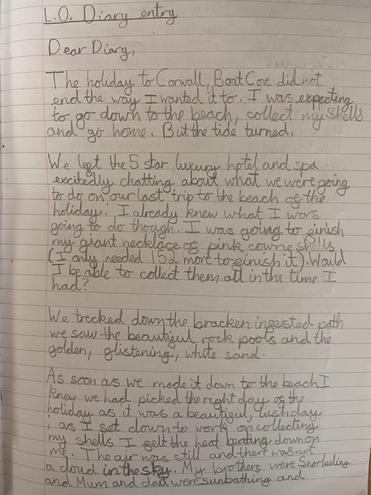 L.O. Diary entry
Dear Diary,
The holiday to Corwall, Boat Cove did not
end the way I wanted it to. I was expecting
to go down to the beach, collect my shells
and go home. But the tide turned.
We left the 5 star luxury hotel and spa
excitedly chatting about what we were going
to do on our last trip to the beach of the
holiday. I already knew what I was
going to do though. I was going to finish
my giant necklace of pink cowrie shells
(I only needed 152 more to finish it). Would
I be able to collect them all in the time I
had?
We trecked down the bracken infested path
we saw the beautiful rock pools and the
golden, glistening, white sand.
As soon as we made it down to the beach I
knew we had picked the right day of the
holiday as it was a beautiful, lush day
, as I set down to work on collecting
my shells I felt the heat beating down on
me. The air was still and there was not
a cloud in the sky. My brothers were Snorkeling
and Mum and dad were sunbathing and